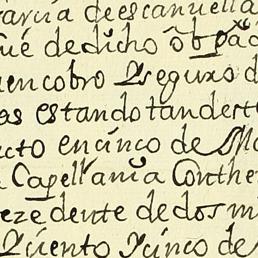 garcia de escanuella
que de dicho
en cobro Y seguro d
as estando tan desert
cto en cinco de M
Capellania Con the
eze dente de dos mi
Y ciento Y cinco de